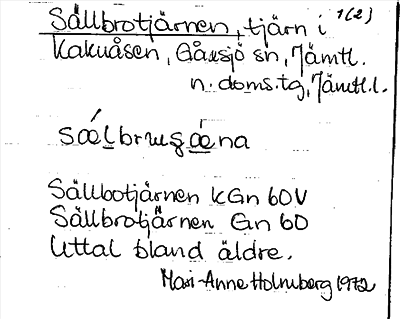 Sällbrotjärnen, tjärn i 1(2)
Kakuåsen, Gåxsjö sn, Jämtl.
n. doms.tg, Jämtl.l.
Sällbotjärnen kGn 60V
Sällbrotjärnen Gn 60
Uttal bland äldre.
Mari-Anne Holmberg 1972